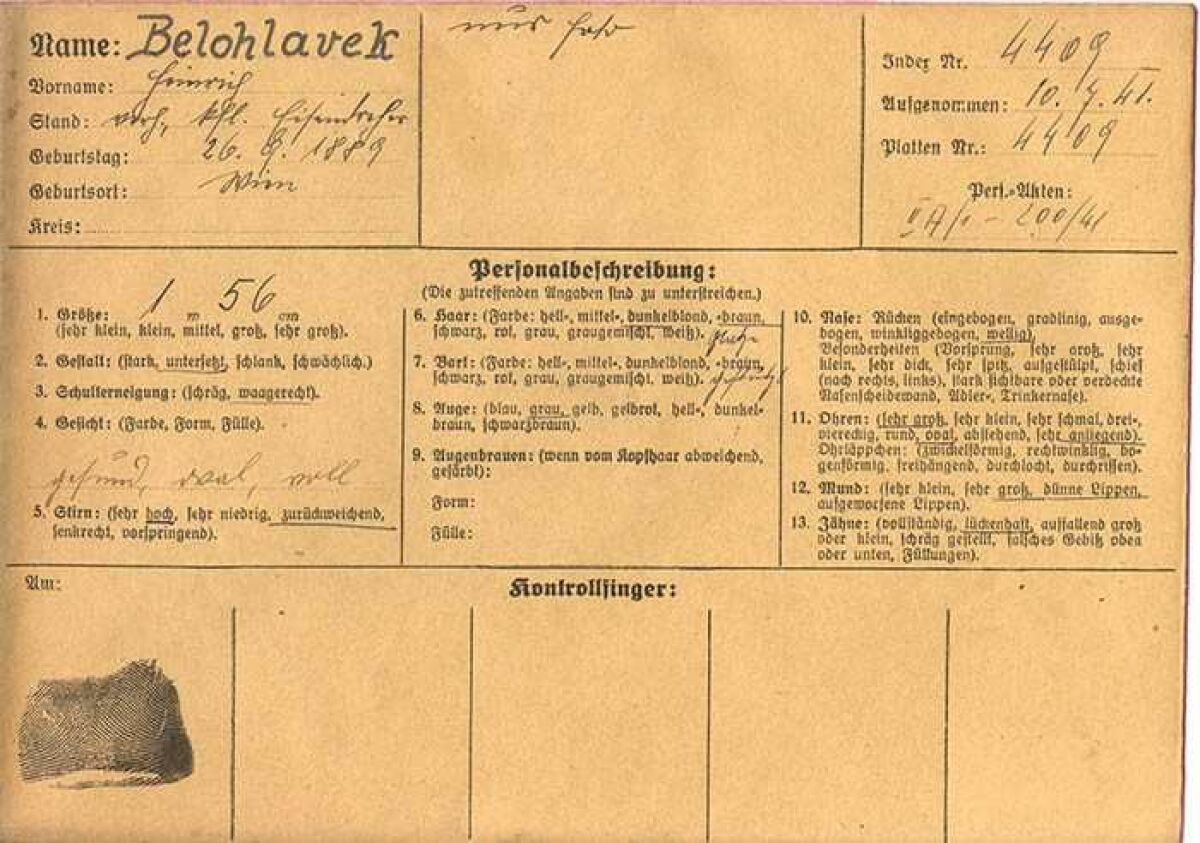 Name: Belohlavek
Vorname: Heinrich
Stand: verh., kfl. Eisendreher
Geburtstag: 26. 9. 1889
Geburtsort: Wien
Kreis:
nur Foto
Index Nr. 4409
Aufgenommen: 10. 7. 41.
Platten Nr.: 4409
Pers.-Akten:
II A/1 - 200/41
Personalbeschreibung:
(Die zutreffenden Angaben sind zu unterstreichen.)
1. Größe: 1 m 56 cm
(sehr klein, klein, mittel, groß, sehr groß).
2. Gestalt: (stark, untersetzt, schlank, schwächlich.)
3. Schulterneigung: (schräg, waagerecht).
4. Gesicht: (Farbe, Form, Fülle).
gesund, oval, voll
5. Stirn: (sehr hoch, sehr niedrig, zurückweichend,
senkrecht, vorspringend).
6. Haar: (Farbe: hell-, mittel-, dunkelblond, -braun,
schwarz, rot, grau, graugemischt, weiß). Glatze
7. Bart: (Farbe: hell-, mittel-, dunkelblond, -braun,
schwarz, rot, grau, graugemischt, weiß).
8. Auge: (blau, grau, gelb, gelbrot, hell-, dunkel-
braun, schwarzbraun).
9. Augenbrauen: (wenn vom Kopfhaar abweichend,
gefärbt):
Form:
Fülle:
10. Nase: Rücken (eingebogen, gradlinig, ausge-
bogen, winkliggebogen, wellig),
Besonderheiten (Vorsprung, sehr groß, sehr
klein, sehr dick, sehr spitz, aufgestülpt, schief
(nach rechts, links), stark sichtbare oder verdeckte
Nasenscheidewand, Adler-, Trinkernase).
11. Ohren: (sehr groß, sehr klein, sehr schmal, drei-,
viereckig, rund, oval, abstehend, sehr anliegend).
Ohrläppchen: (zwickelförmig, rechtwinklig, bo-
genförmig, freihängend, durchlocht, durchrissen).
12. Mund: (sehr klein, sehr groß, dünne Lippen,
aufgeworfene Lippen).
13. Zähne: (vollständig, lückenhaft, auffallend groß
oder klein, schräg gestellt, falsches Gebiß oben
oder unten, Füllungen).
Am:
Kontrollfinger: